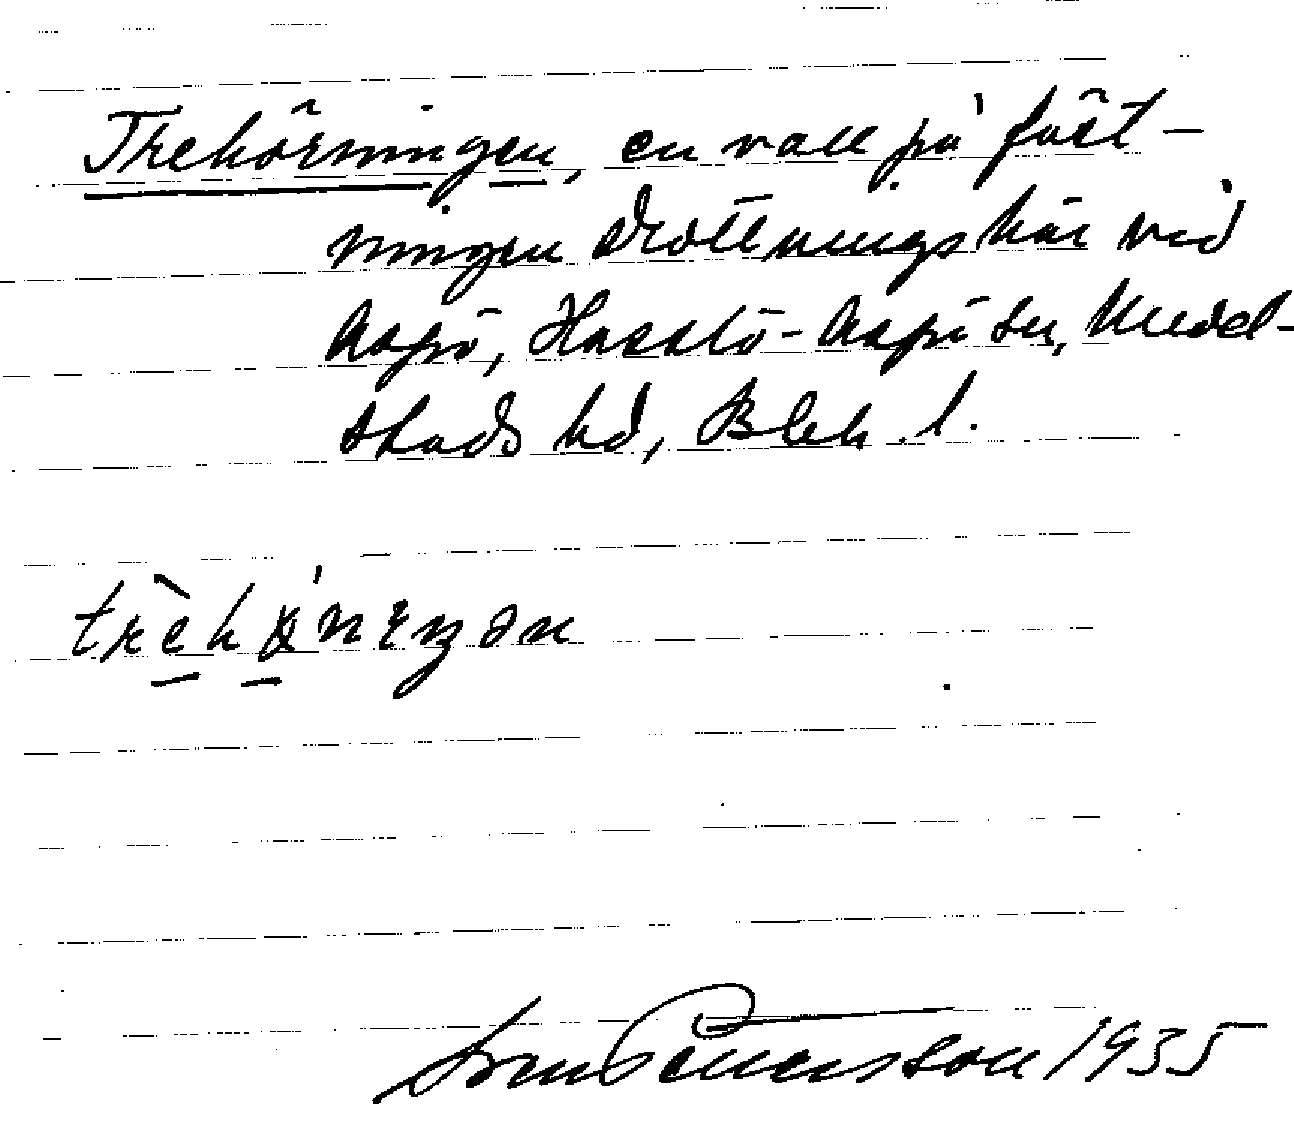 Trekörningen, en vall på fäst-
ningen Drottningskär vid
Aspö, Hasslö-Aspö sn, Medel-
stads hd, Blek. l.
1935